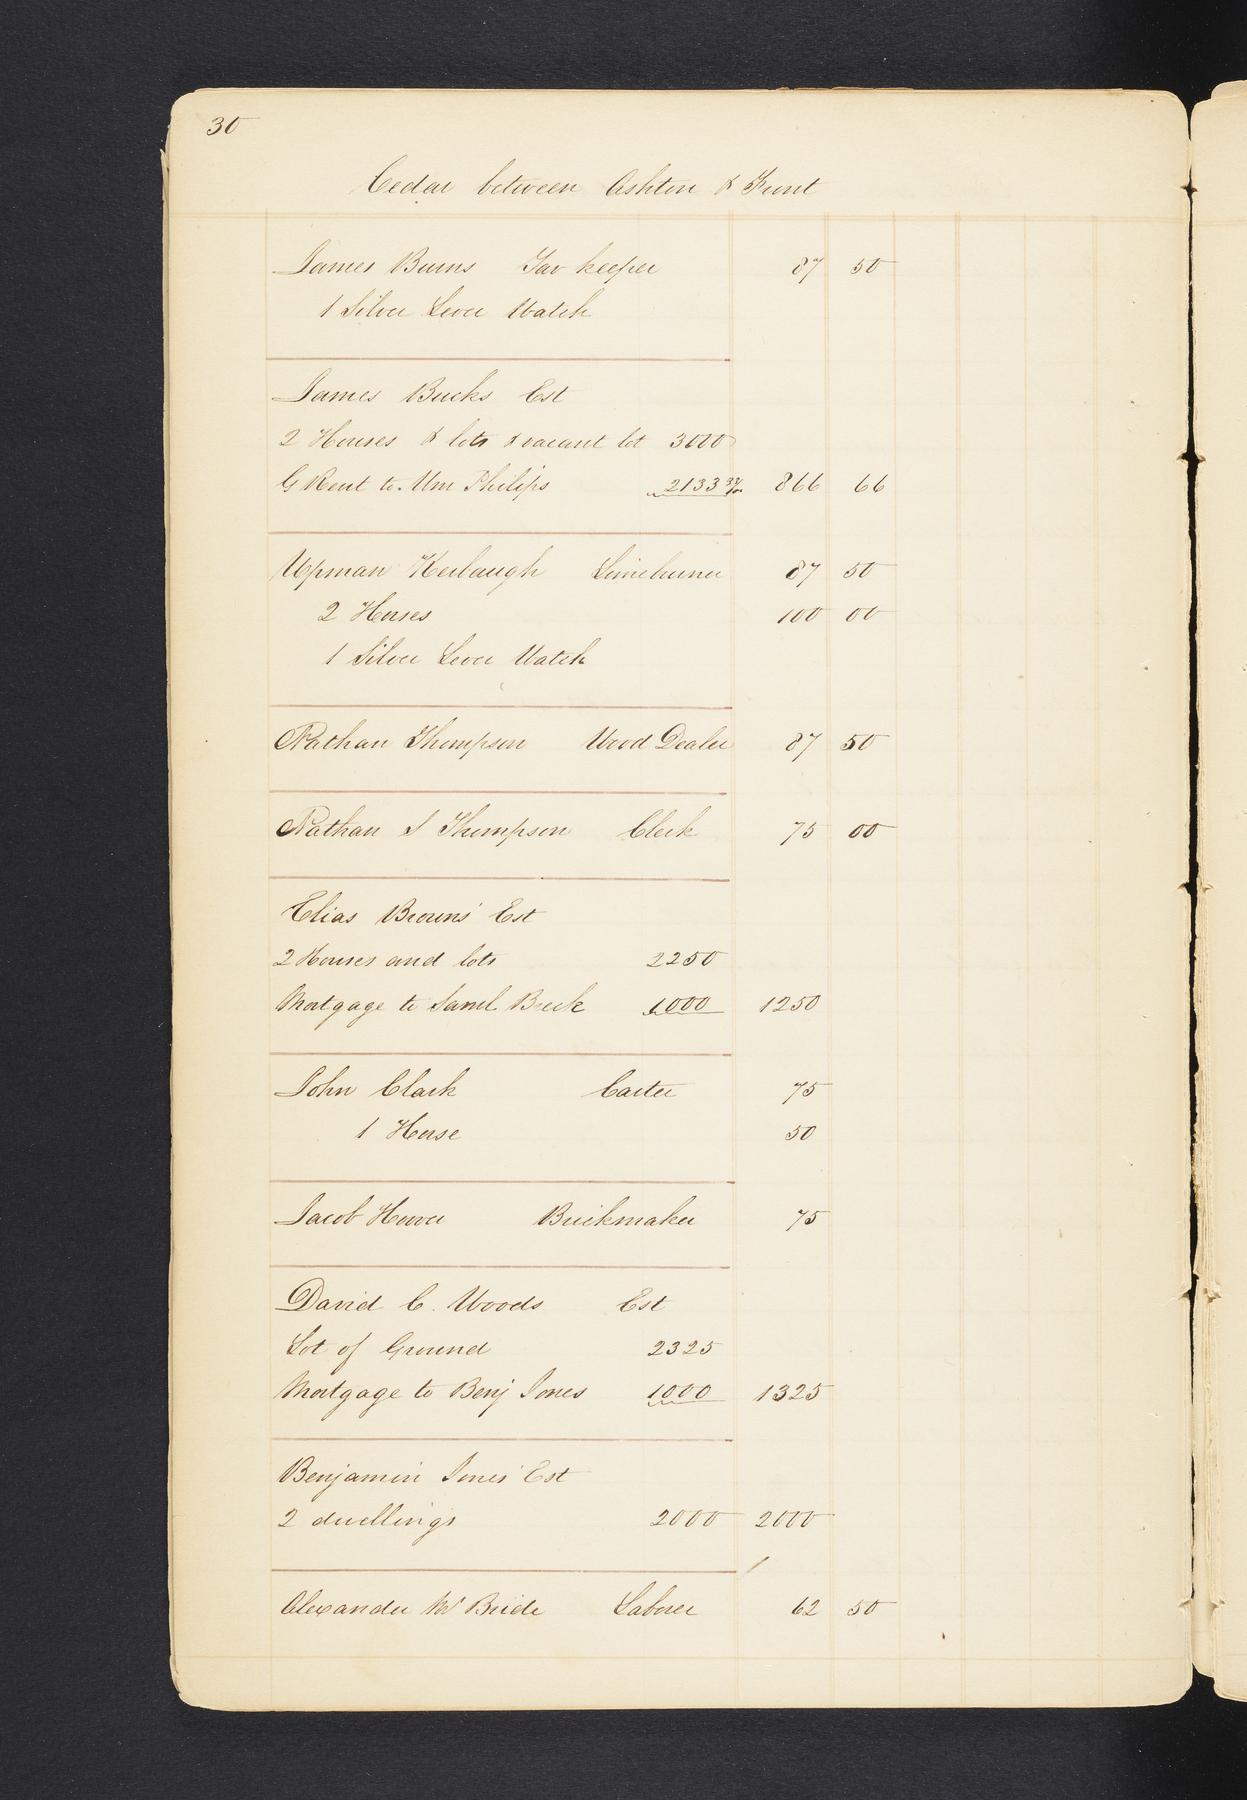 30
Cedar between Ashton & Front
James Burns Tav keeper 87 50
1 Silver Lever Watch
James Bucks Est
2 Houses & lots & vacant lot 3000
G Rent to Wm Philips 2133 33/100 866 66
Upman Kerbaugh Limeburner 87 50
2 Horses 100 00
1 Silver Lever Watch
Nathan Thompson Wood Dealer 87 50
Nathan S Thompson Clerk 75 00
Elias Browns' Est
2 Houses and lots 2250
Mortgage to Saml Breck 1000 1250
John Clark Carter 75
1 Horse 50
Jacob Hoover Brickmaker 75
David C. Woods Est
Lot of Ground 2325
Mortgage to Benj Jones 1000 1325
Benjamin Jones' Est
2 dwellings 2000 2000
Alexander McBride Laborer 62 50